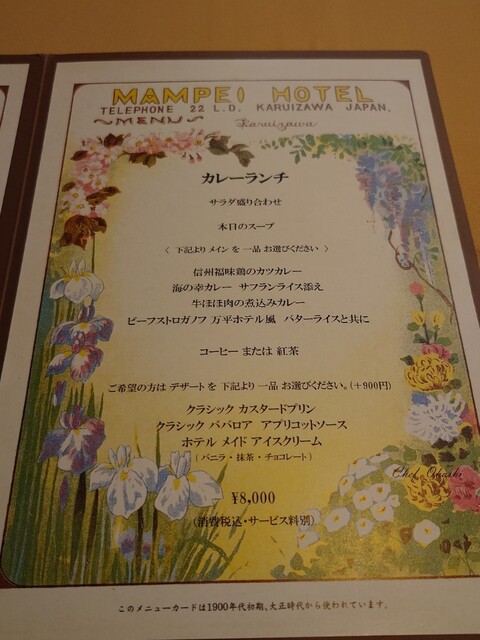 MAMPEI HOTEL
TELEPHONE 22 L.D. KARUIZAWA JAPAN.
~MENU~ Karuizawa
カレーランチ
サラダ盛り合わせ
本日のスープ
〈 下記より メイン を 一品 お選びください 〉
信州福味鶏のカツカレー
海の幸カレー サフランライス添え
牛ほほ肉の煮込みカレー
ビーフストロガノフ 万平ホテル風 バターライスと共に
コーヒー または 紅茶
ご希望の方は デザート を 下記より 一品 お選びください。(+900円)
クラシック カスタードプリン
クラシック ババロア アプリコットソース
ホテル メイド アイスクリーム
(バニラ・抹茶・チョコレート)
Chef. Ohashi
¥8,000
(消費税込・サービス料別)
このメニューカードは1900年代初期、大正時代から使われています。